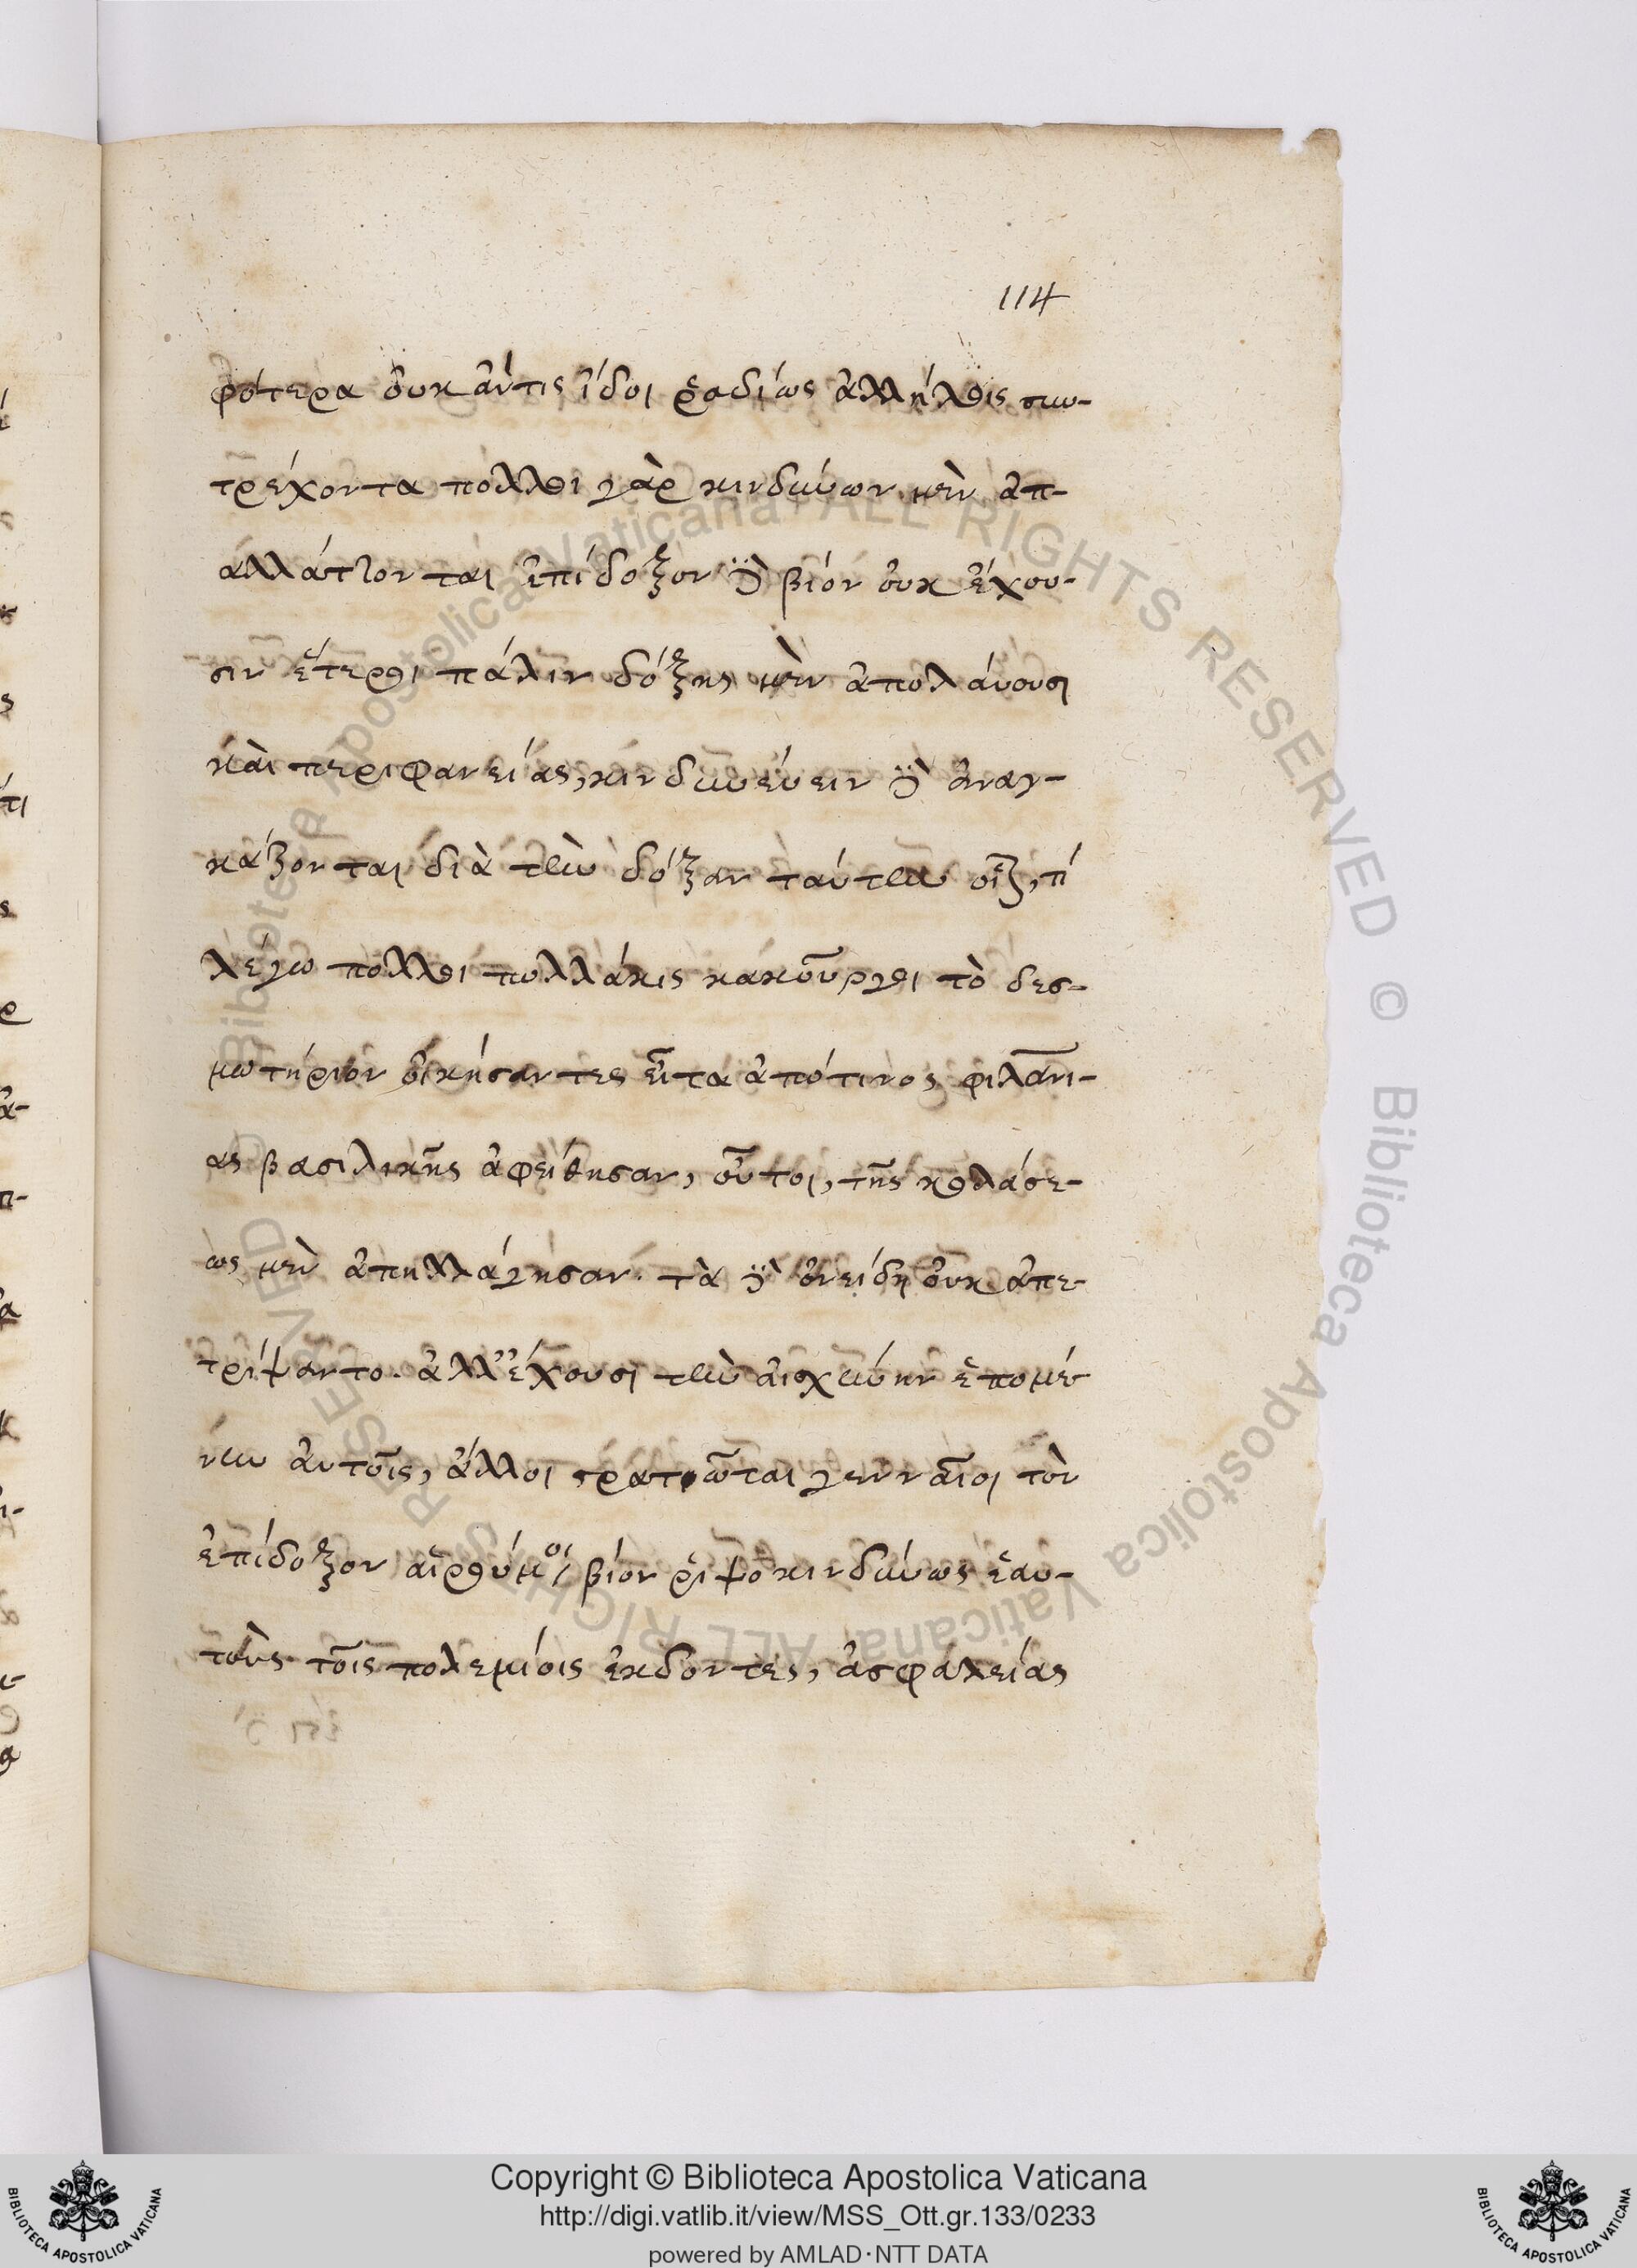 114
φότερα ὀυκ ἄντις ἴδοι ῥαδίως ἀλλήλοις συν-
τρέχοντα πολλοὶ γὰρ κινδύνων μὲν ἀπ-
αλλάττονται ἐπίδοξον δὲ βίον ὀυκ ἔχου-
σιν ἕτεροι πάλιν δόξης μὲν ἀπολάυουσι
κὰι περιφανείας, κινδυνέυειν δὲ ἀναγ-
κάζονται διὰ τὴν δόξαν τάυτην οἷον, τί
λέγω πολλοὶ πολλάκις κακοῦργοι τὸ δεσ-
μωτήριον ὀικήσαντες εἶτα ἀπό τινος φιλανι-
ας βασιλικῆς ἀφείθησαν, οὗτοι, τῆς κολάσε-
ως μὲν ἀπηλλάγησαν. τὰ δὲ ὀνείδη ὀυκ ἀπε-
τρίψαντο. ἀλλ' ἔχουσι τὴν ἀισχύνην ἑπομέ
νην ἀυτοῖς, ἄλλοι στρατιῶται γενναῖοι τὸν
ἐπίδοξον αἱρούμενοι βίον ῥιψοκινδύνως ἑαυ-
τοὺς τοῖς πολεμίοις ἐκδόντες, ἀσφαλείας
Copyright © Biblioteca Apostolica Vaticana
http://digi.vatlib.it/view/MSS_Ott.gr.133/0233
powered by AMLAD·NTT DATA
BIBLIOTECA APOSTOLICA VATICANA
BIBLIOTECA APOSTOLICA VATICANA
© Biblioteca Apostolica Vaticana ALL RIGHTS RESERVED © Biblioteca Apostolica Vaticana ALL RIGHTS RESERVED